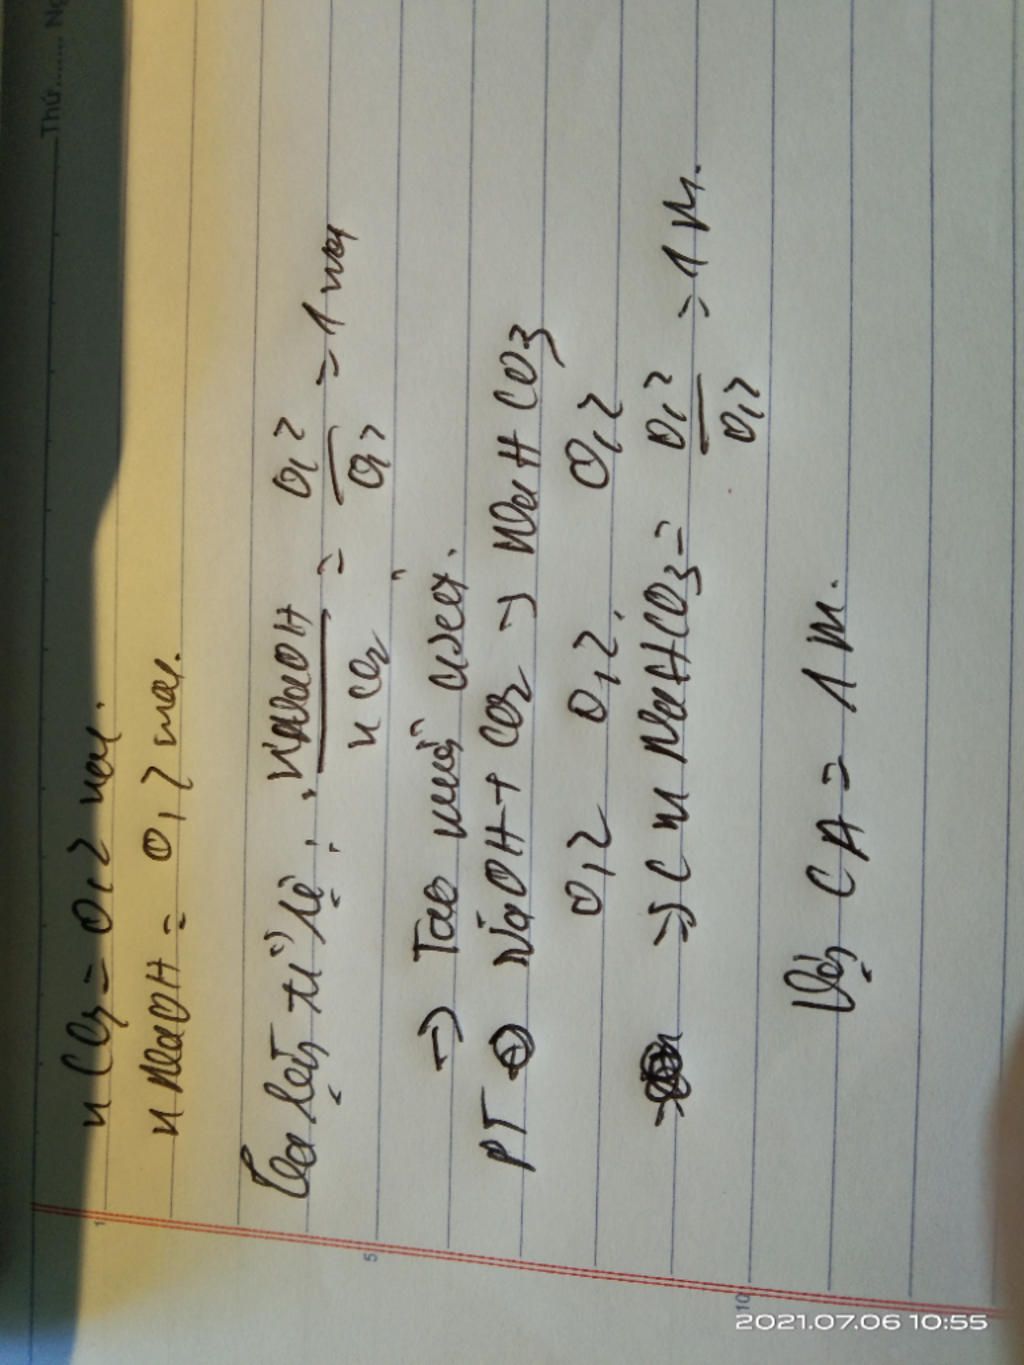 Thứ....... Ng
n CO2 = 0,2 mol.
n NaOH = 0,2 mol.
Ta lập tỉ lệ: nNaOH / nCO2 = 0,2 / 0,2 = 1 mol
=> Tạo muối axit.
PT NaOH + CO2 -> NaHCO3
0,2 0,2 0,2
=> CM NaHCO3 = 0,2 / 0,2 = 1 M.
CA = 1 M.
1
5
10
2021.07.06 10:55